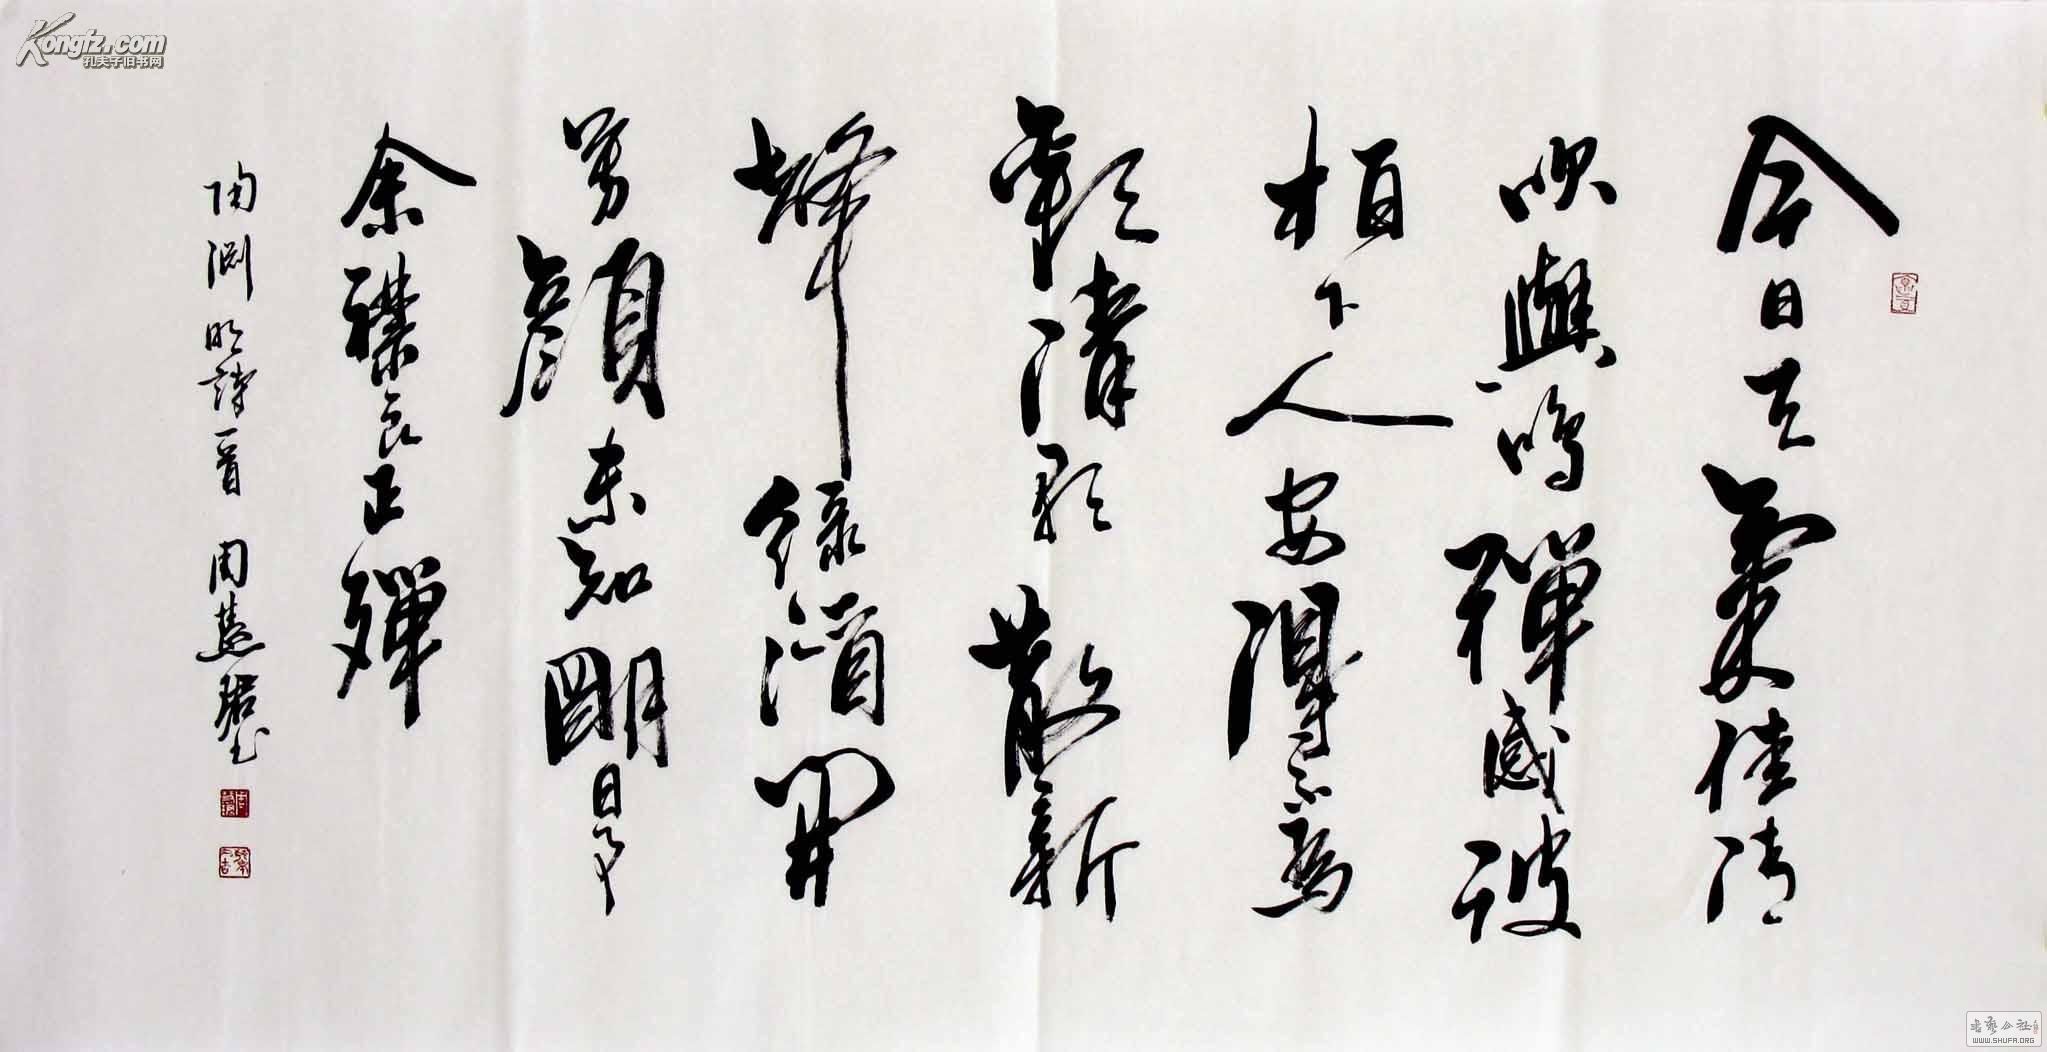 Kongfz.com
孔夫子旧书网
今日天氣佳清
吹與鳴彈感彼
柏下人安得不為
歡清歌散新
聲綠酒開
芳顏未知明日事
余襟良正殫
陶淵明詩一首 周慧珺书
書藝公社
WWW.SHUFA.ORG